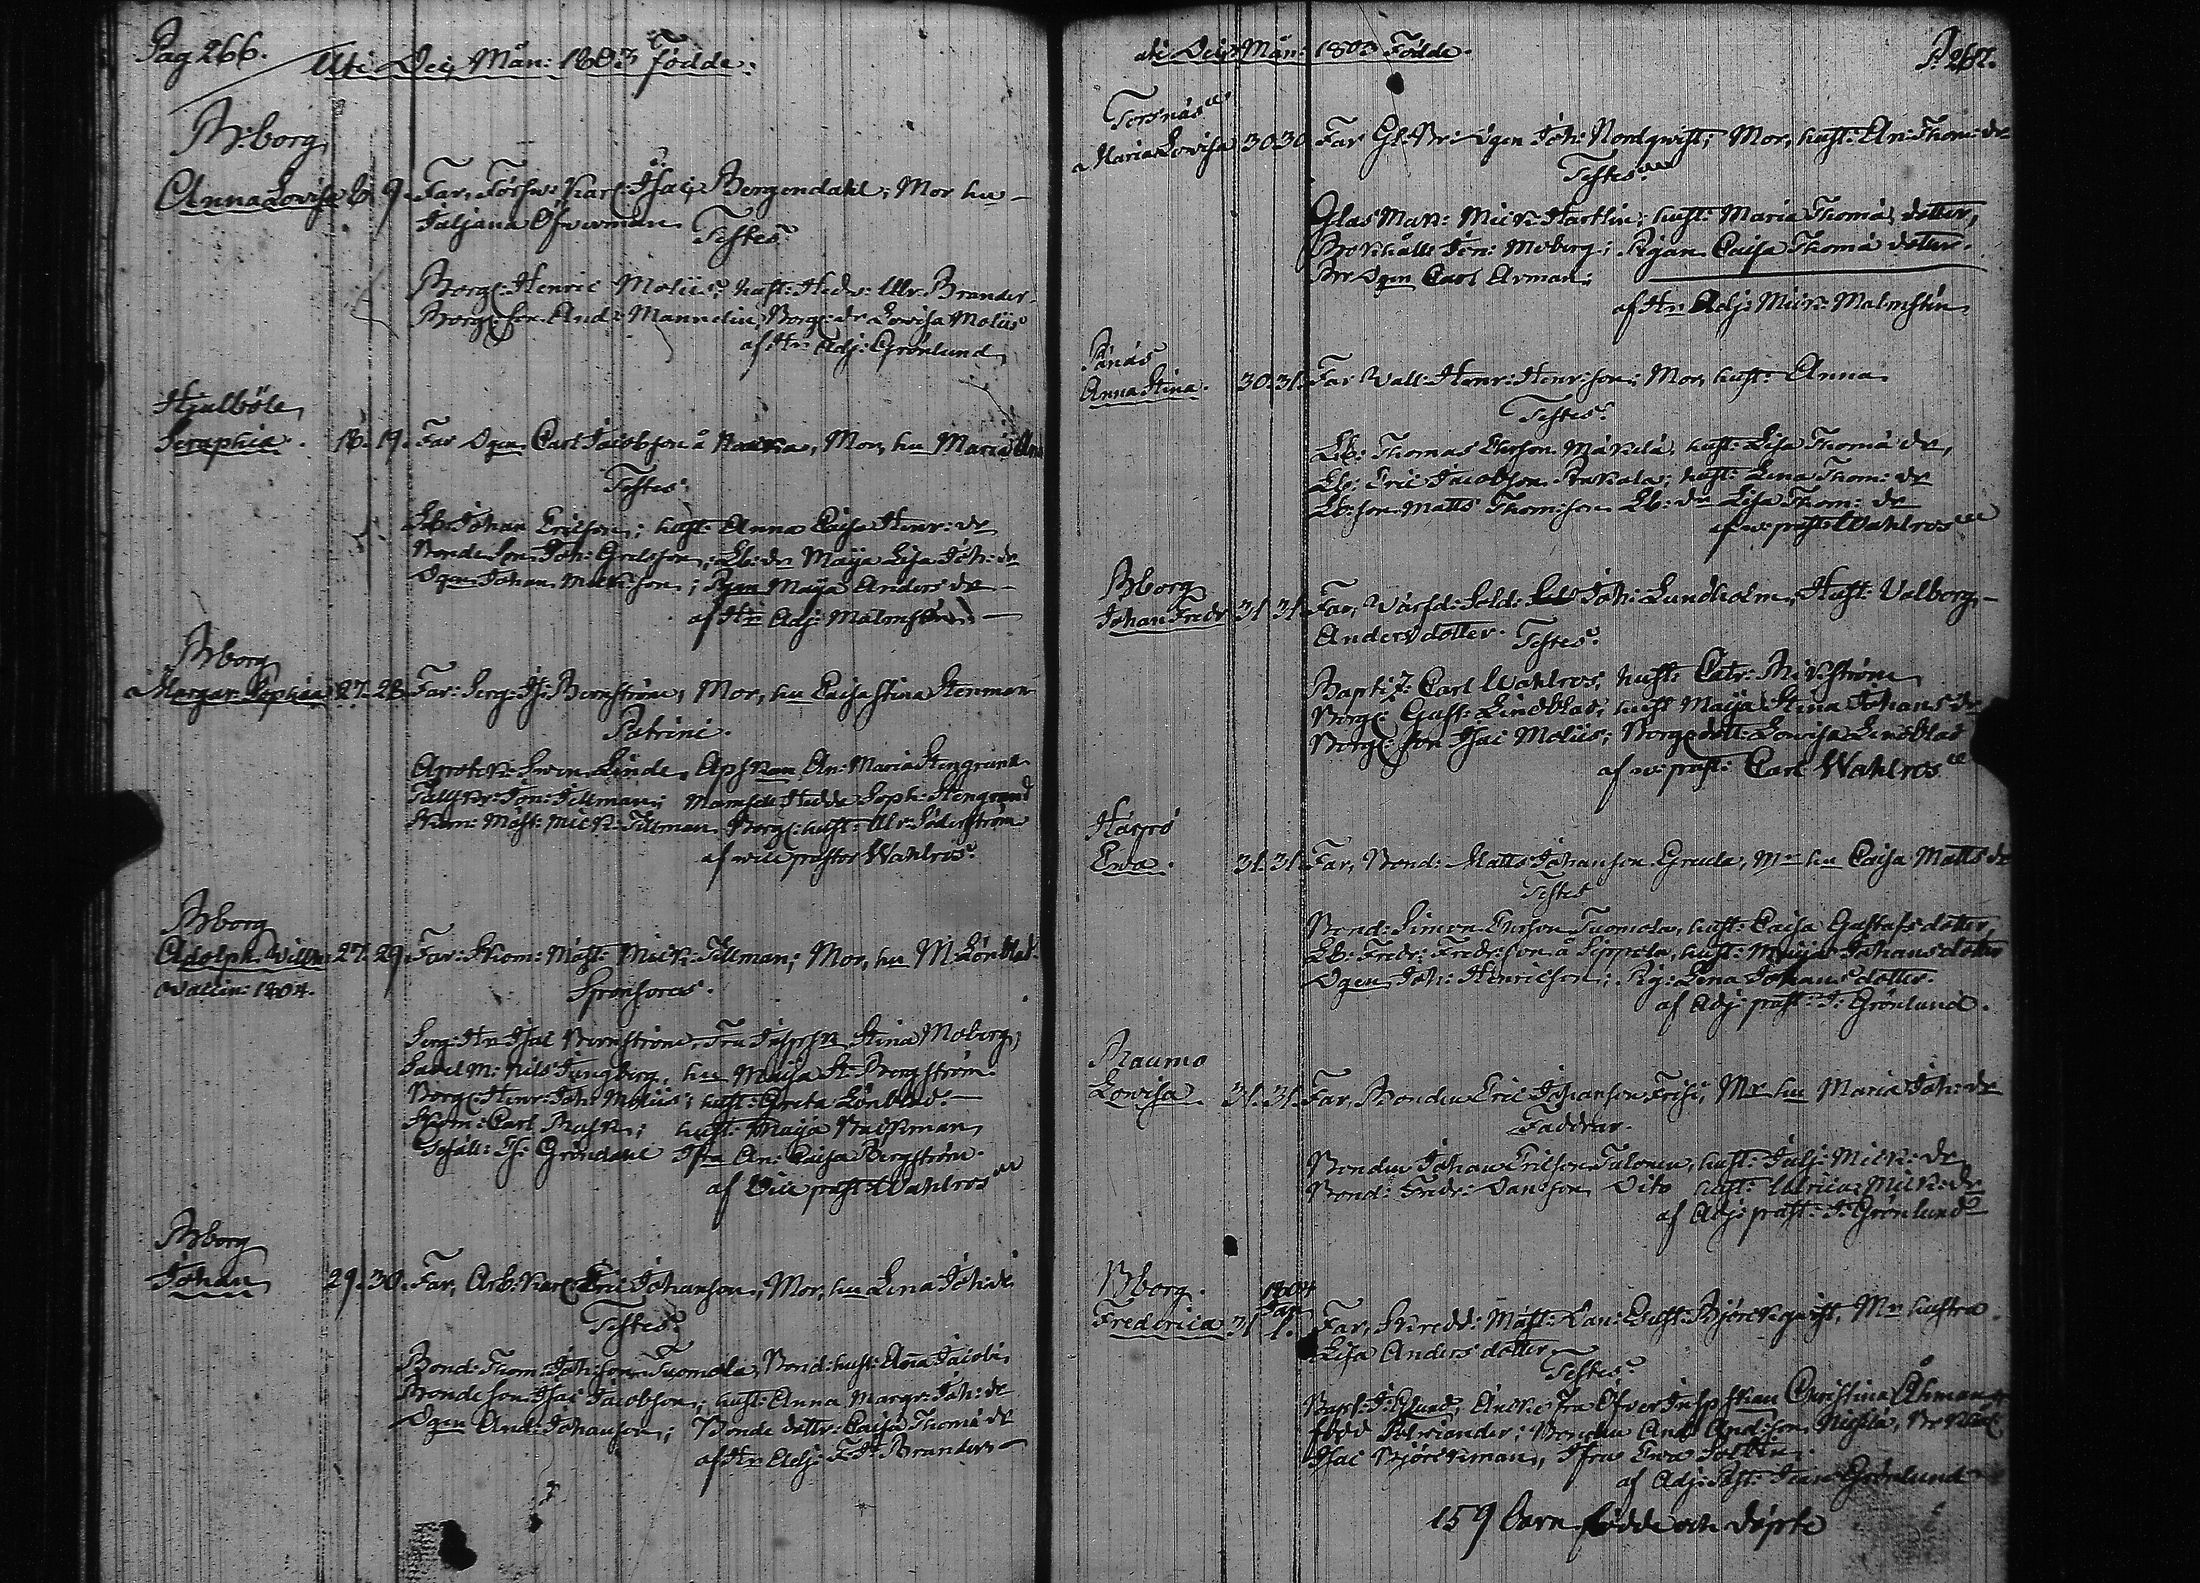 Pag 266.
Uti Decz Mån: 1803 födde:
B:borg
Anna Lovisa 8. 9. Far, Försw: Karl: Isac; Bergendahl; Mor hu
Juljana Öfverman
Testes:
Borg: Henric Moliis; hust: Hedv: Ulr: Brander
Borg: son And: Mannelin, Borg: dr Lovisa Moliis
af Hr: Adj: Grönlund
Hjulböle
Seraphia. 18. 19. Far Dgen Carl Jacobson å, Mor, hu Maria
Testes:
Lb: Johan Ericson; hust: Anna Caisa Henr: dr
Bonde Son Joh: Grelsson; Lb: dr Maija Lisa Joh: dr
Dgen Johan Mickson; Pgan Maija Anders dr
af Hr Adj: Malmsten
B:borg
Margar: Sophia 27. 28 Far: Serg: Is: Bernström, Mor, hu Caisa Stina Stenman
Patrini.
Apotek: Swen Linde, Apskan An: Maria Stengrund
Jon: Tillman; Mamsell Hedda Soph: Stengrund
Skom: Mäst: Mick: Tillman Borg: hust: Ulr: Söderström
af vice pastor Wahlros:
B:borg
Adolph Wilhe 27. 29. Far: Skom: Mäst: Mick: Tillman; Mor, hu M: Lönblad.
Vaccin: 1804.
Sponsores.
Serg: Hr Isac Bernström, Fru Stina Moberg;
Sadel M: Nils Ljungberg, hu Maija St: Bergström.
Borg: Henr: Joh: Moliis; hust: Greta Lönblad.
Skom: Carl Rask; hust: Maija Backman
Gesäll: Is: Gröndahl Jfru An: Caisa Bergström.
af Vice past: Wahlros
B:borg
Johan 29. 30. Far, Arb: Karl: Eric Johanson, Mor, hu Lena Joh: dr
Testes:
Bond: Thom: Joh: son Tuomola, Bond: hust: Anna Jacobs
Bonde son Isac Jacobson; hust: Anna Margr: Joh: dr
Dgen And: Johanson; Bonde dottr: Caisa Thoma dr
af Hr Adj: F: H: Brander
uti Decz Mån: 1803 Födde.
P. 267.
Torsnäs
Maria Lovisa 30. 30 Far Gl: Br: Dgen Joh: Nordqwist; Mor, hust: An: Thom: dr
Testes
Glas Mak: Mick: Hartlin; hust: Maria Thoma dotter,
Bokhålle Jon: Moberg; Pigan Caisa Thoma dotter.
Br Dgen Carl Arman;
af Hr: Adj: Mick: Malmsten
Pänäs
Anna Stina. 30. 31. Far Vall: Henr: Henr: son; Mor, hust: Anna
Testes:
Lb: Thomas Erson Mäkelä, hust: Lisa Thoma dr,
Lb: Eric Jacobson Kukola; hust: Lena Thom: dr
Lb: son Matts Thomson Lb: dr Lisa Thom: dr
af v: past: Wahlros
B:borg
Johan Fredr 31. 31. Far, Värfd: Sold: Joh: Lundholm, Hust: Valborg
Anders dotter.
Testes:
Baptist: Carl Wahlros; hust: Catr: Mickström
Borg: Gust: Lindblad; hust Maija Stina Johans dr
Borg: son Isac Moliis; Borg: dott: Lovisa Lindblad
af v: past: Carl Wahlros
Harjo
Ewa. 31. 31. Far, Bond: Matts Johanson Greula, Mr hu Caisa Matts dr
Testes
Bond: Simon Ericson Tuomola, hust: Caisa Gustafs dotter,
Lb: Fredr: Fredr: son å Sippola, hust: Maija Johans dotter
Dgen Joh: Henricson; Pig: Lena Johans dotter.
af Adj: past: J: Grönlund.
Raumo
Lovisa. 31. 31. Far, Bonden Eric Johanson Frisi, Mr hu Maria Joh: dr
Faddrar.
Bonden Johan Ericson Tulonen, hust: Julj: Mick: dr
Bond: Fredr: Danson Dito hust: Ulrica Mick: dr
af Adj: past: J: Grönlund
B:borg. 1804
Jan
Frederica 31 1. Far, Skredd: Mäst: Dan: Gust: Björckqvist, Mr hustru
Lisa Anders dotter
Testes:
Bapt: J: Eklund; Enke Fru Öfver Inspskan Christina Åhman
född Polviander; Bonden And: And: son Nissilä,
Isac Björckman, Jfru Ewa
af Adj: Past: Joan Grönlund
159 barn födde och döpte